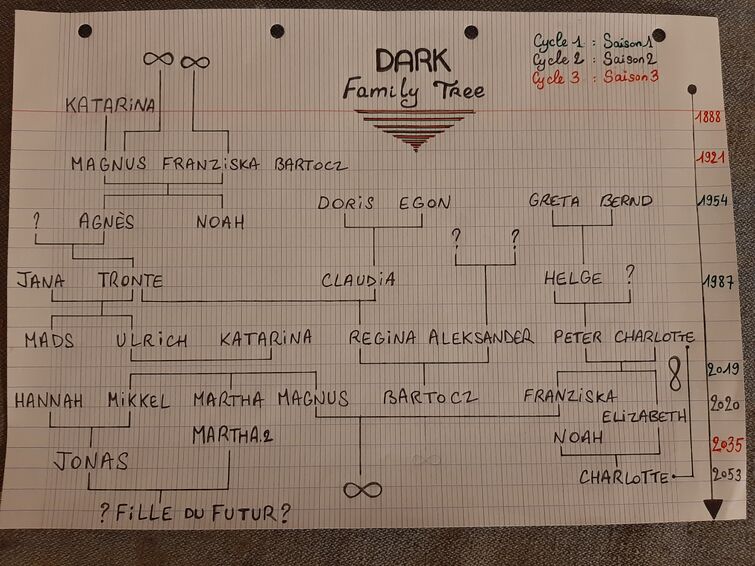 DARK
Family Tree
Cycle 1 : Saison 1
Cycle 2 : Saison 2
Cycle 3 : Saison 3
∞ ∞
KATARINA
1888
MAGNUS FRANZISKA BARTOCZ
1921
DORIS EGON GRETA BERND
1954
? AGNÈS NOAH
? ?
JANA TRONTE CLAUDIA HELGE ?
1987
MADS ULRICH KATARINA REGINA ALEKSANDER PETER CHARLOTTE
∞
2019
HANNAH MIKKEL MARTHA MAGNUS BARTOCZ FRANZISKA
2020
ELIZABETH
MARTHA.2 NOAH
2035
JONAS CHARLOTTE
2053
∞
? FILLE DU FUTUR ?